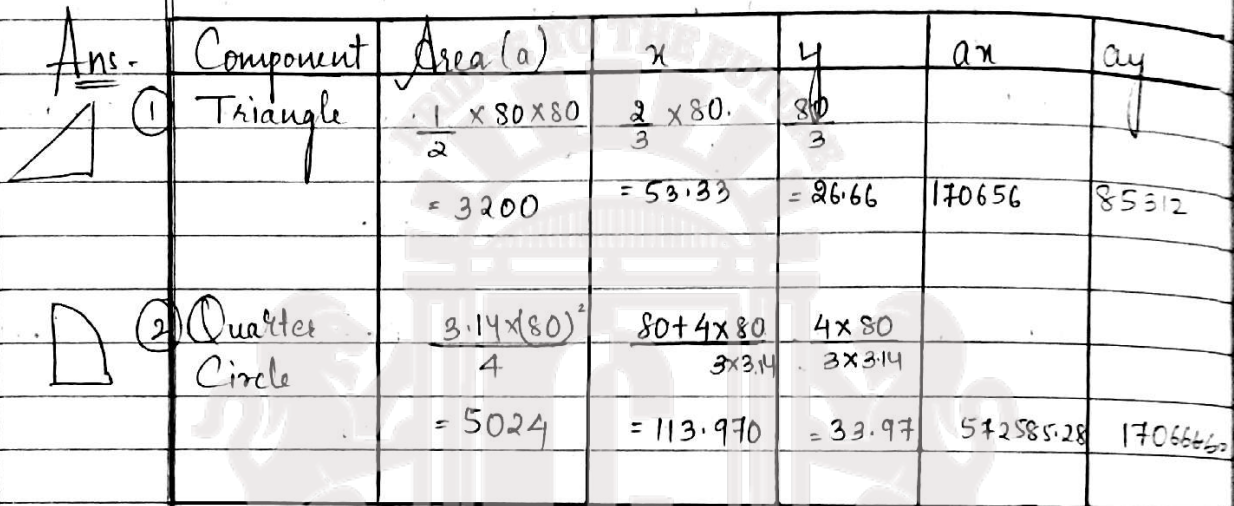 Ans. Component Area (a) x y ax ay
① Triangle 1/2 × 80×80 2/3 ×80. 80/3
= 3200 = 53.33 = 26.66 170656 85312
② Quarter Circle 3.14×(80)²/4 80+4×80/3×3.14 4×80/3×3.14
= 5024 = 113.970 = 33.97 572585.28